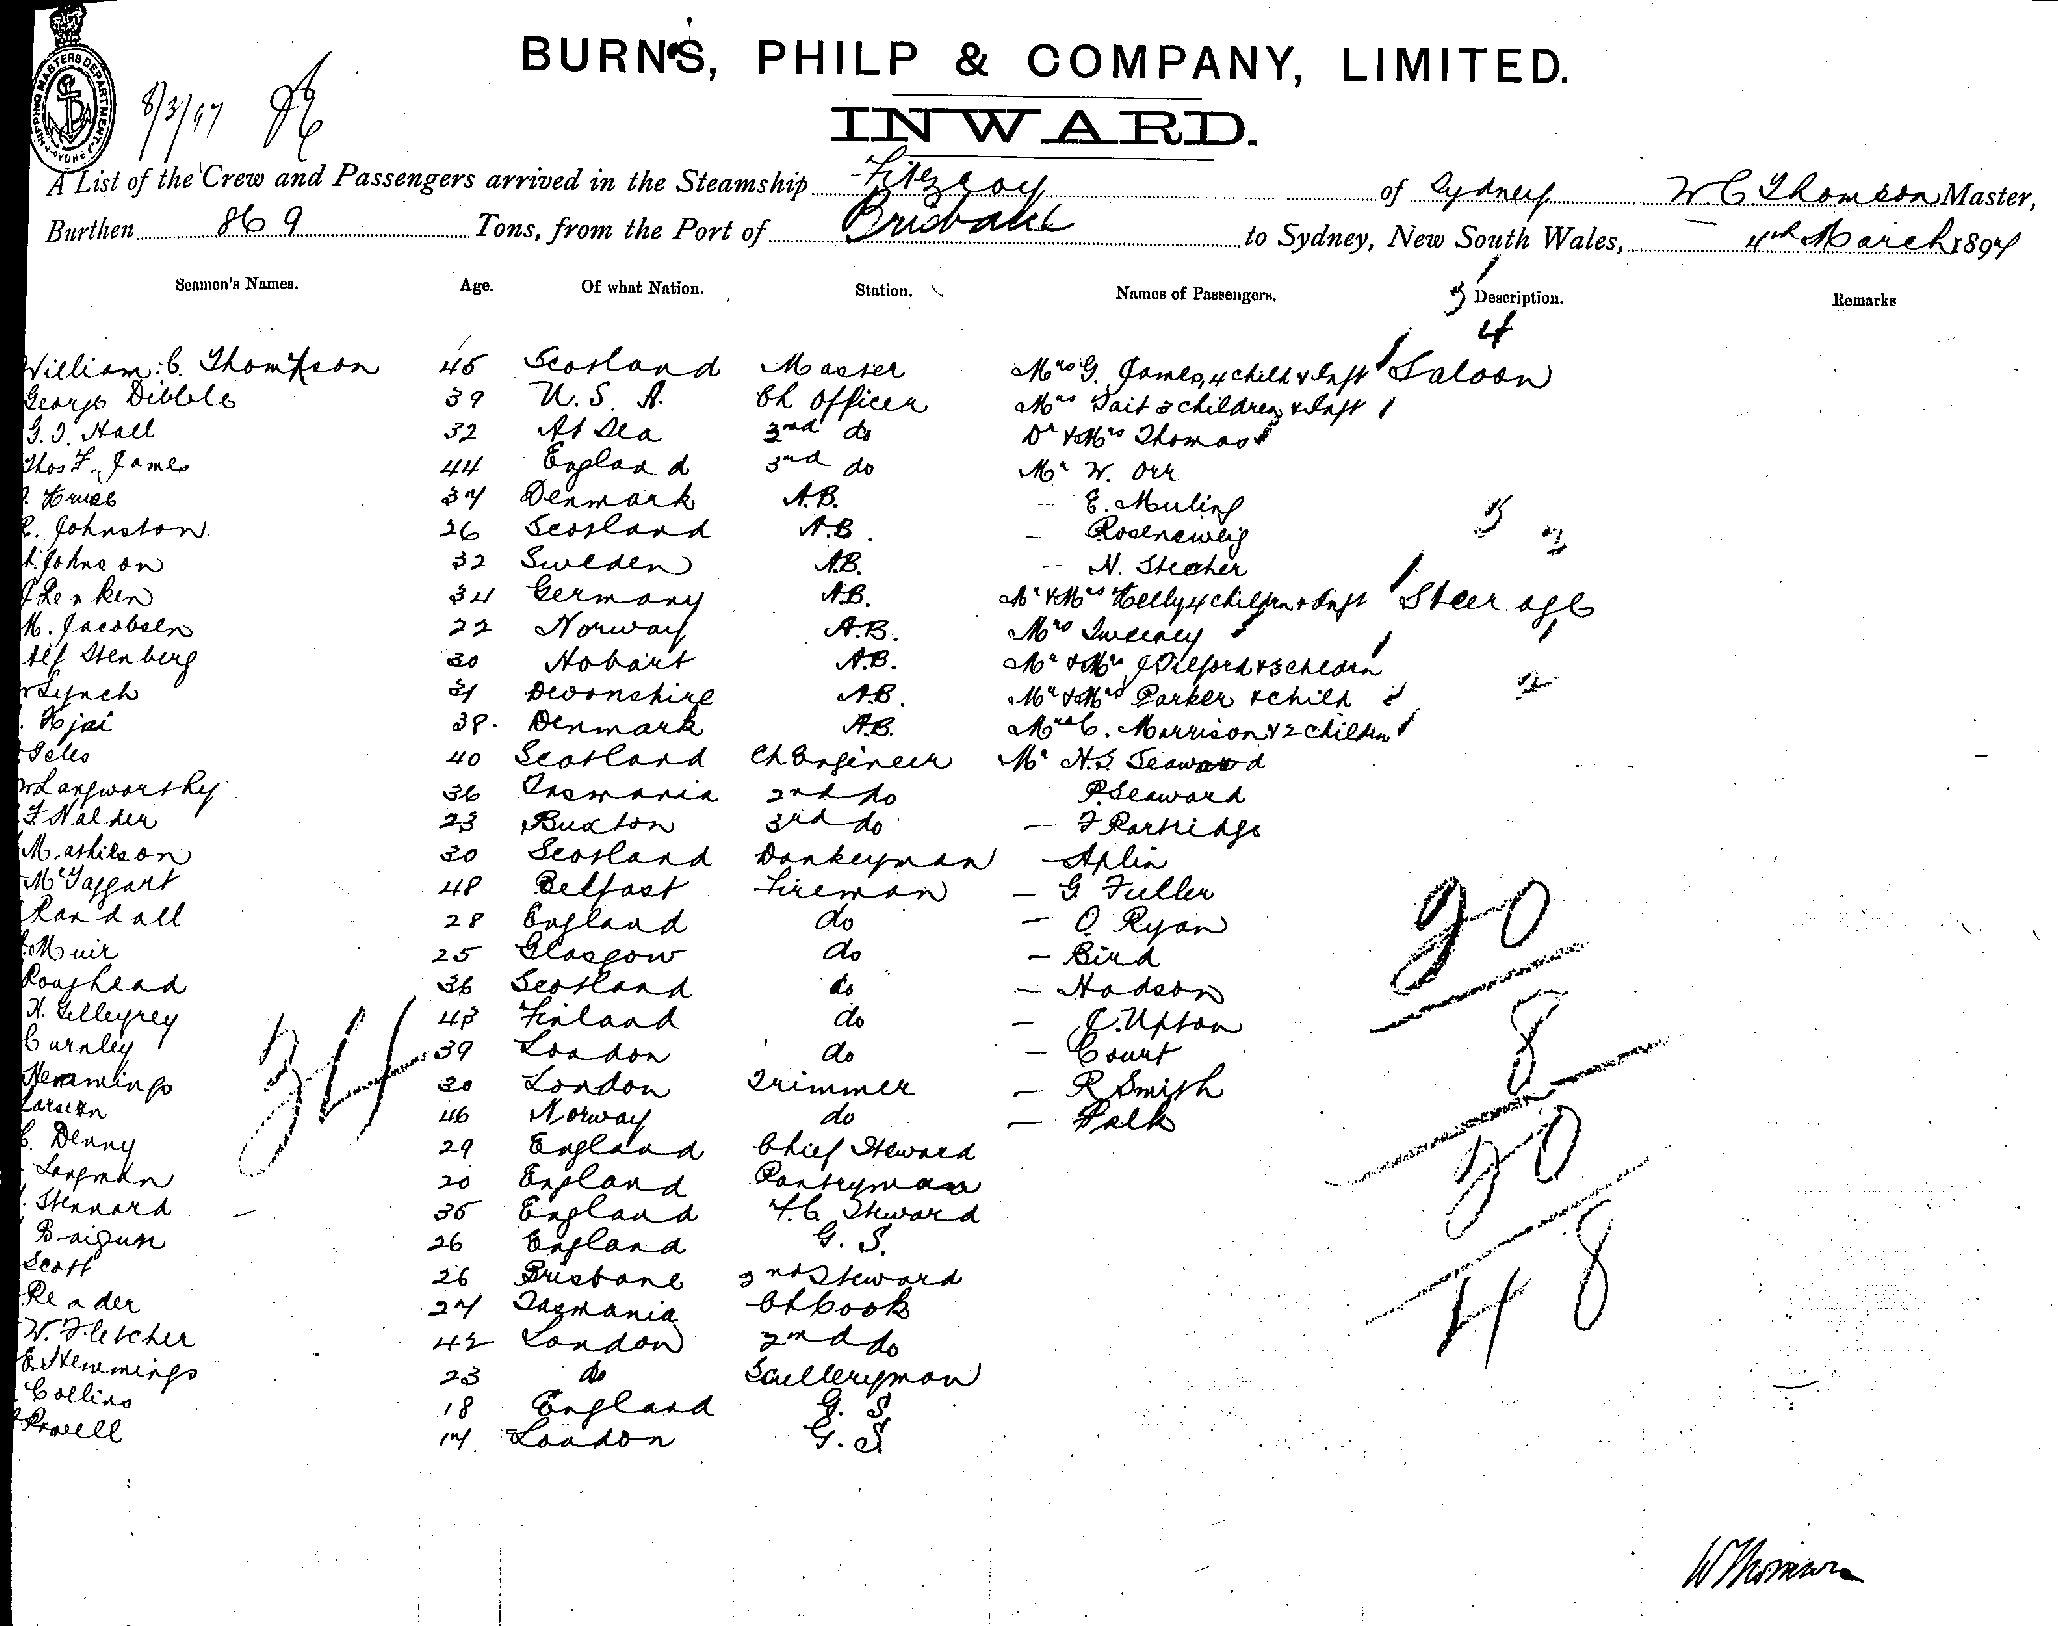 SHIPPING MASTERS DEPARTMENT SYDNEY
8/3/97
BURNS, PHILP & COMPANY, LIMITED.
INWARD.
A List of the Crew and Passengers arrived in the Steamship Fitzroy of Sydney W C Thomson Master,
Burthen 869 Tons, from the Port of Brisbane to Sydney, New South Wales, 4th March 1897
Seamen's Names. Age. Of what Nation. Station. Names of Passengers. Description. Remarks
4
William C. Thompson 45 Scotland Master Mrs G. James, 4 child & Inft Saloon
George Dibble 39 U. S. A. Ch Officer Mrs Tait 3 children & Inft
G. J. Hall 32 At Sea 2nd do Dr & Mrs Thomas
Thos F. James 44 England 3rd do Mr W. Orr
Kruse 37 Denmark A.B. — E. Muling
Johnston 26 Scotland A.B. — Rosenzweig
Johnson 32 Sweden A.B. — N. Stecher
Renken 34 Germany A.B. Mr & Mrs Kelly 4 children & Inft Steerage
M. Jacobsen 22 Norway A.B. Mrs Sweeney
Alf Stenberg 30 Hobart A.B. Mr & Mrs J Pilford & 3 childrn
Lynch 31 Devonshire A.B. Mr & Mrs Parker & child
38. Denmark A.B. Mrs C. Morrison & 2 children
40 Scotland Ch Engineer Mr H.S. Seaward
Langworthy 36 Tasmania 2nd do P. Seaward
F Nalder 23 Buxton 3rd do — F Partridge
Mathieson 30 Scotland Donkeyman — Aplin
McTaggart 48 Belfast Fireman — G Fuller
Randall 28 England do — O. Ryan
Muir 25 Glasgow do — Bird
Roughead 36 Scotland do — Hodson
43 Finland do — C. Upton
Curnley 39 London do — Court
Hemmings 30 London Trimmer — R Smith
Larsen 46 Norway do — Polk
C. Denny 29 England Chief Steward
Longman 20 England Pantryman
Stennard 35 England F.C. Steward
26 England G. S.
Scott 26 Brisbane 2nd Steward
Reader 27 Tasmania Ch Cook
W. Fletcher 42 London 2nd do
E. Hemmings 23 do Sculleryman
Collins 18 England G. S
Powell 17 London G. S
34
20
8
20
48